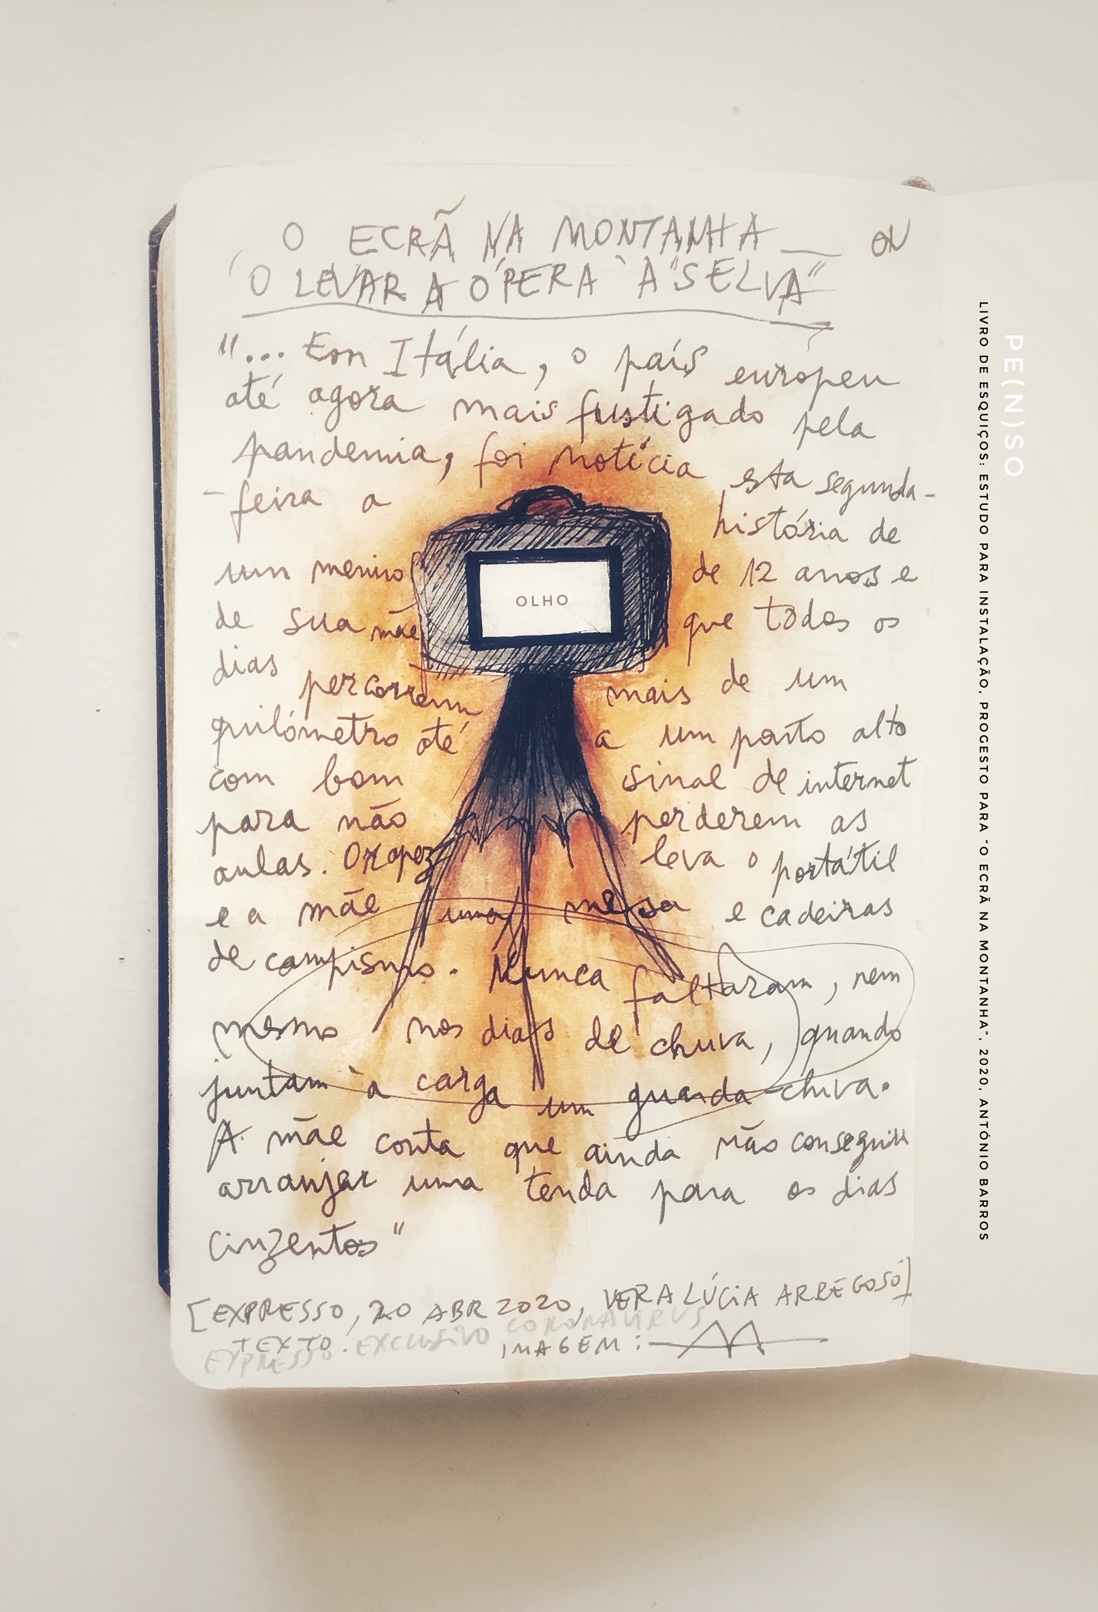 O ECRÃ NA MONTANHA — OU
"O LEVAR A ÓPERA À "SELVA"
"... Em Itália, o país europeu
até agora mais fustigado pela
pandemia, foi notícia esta segunda-
-feira a história de
um menino de 12 anos e
de sua mãe que todos os
dias percorrem mais de um
quilómetro até a um ponto alto
com bom sinal de internet
para não perderem as
aulas. leva o portátil
e a mãe uma mesa e cadeiras
de campismo. Nunca faltaram, nem
mesmo nos dias de chuva, quando
juntam à carga um guarda-chuva.
A mãe conta que ainda não conseguiu
arranjar uma tenda para os dias
cinzentos"
[EXPRESSO, 20 ABR 2020, VERA LÚCIA ARREGOSO]
TEXTO: EXCLUSIVO CORONAVIRUS
EXPRESSO IMAGEM:
OLHO
PE(N)SO
LIVRO DE ESQUIÇOS: ESTUDO PARA INSTALAÇÃO, PROGESTO PARA "O ECRÃ NA MONTANHA", 2020, ANTÓNIO BARROS